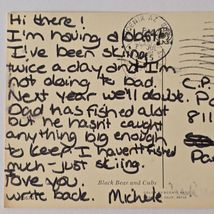 Hi there!
I'm having a blast
I've been skiing
twice a day and I'm
not doing to bad
Next year we'll double.
Dad has fished a lot
but he hasn't caught
anything big enough
to keep. I haven't fished
much - just skiing.
love you.
write back. Michele
PHOENIX AZ
C.P.
P.
811
Pa
Black Bear and Cubs